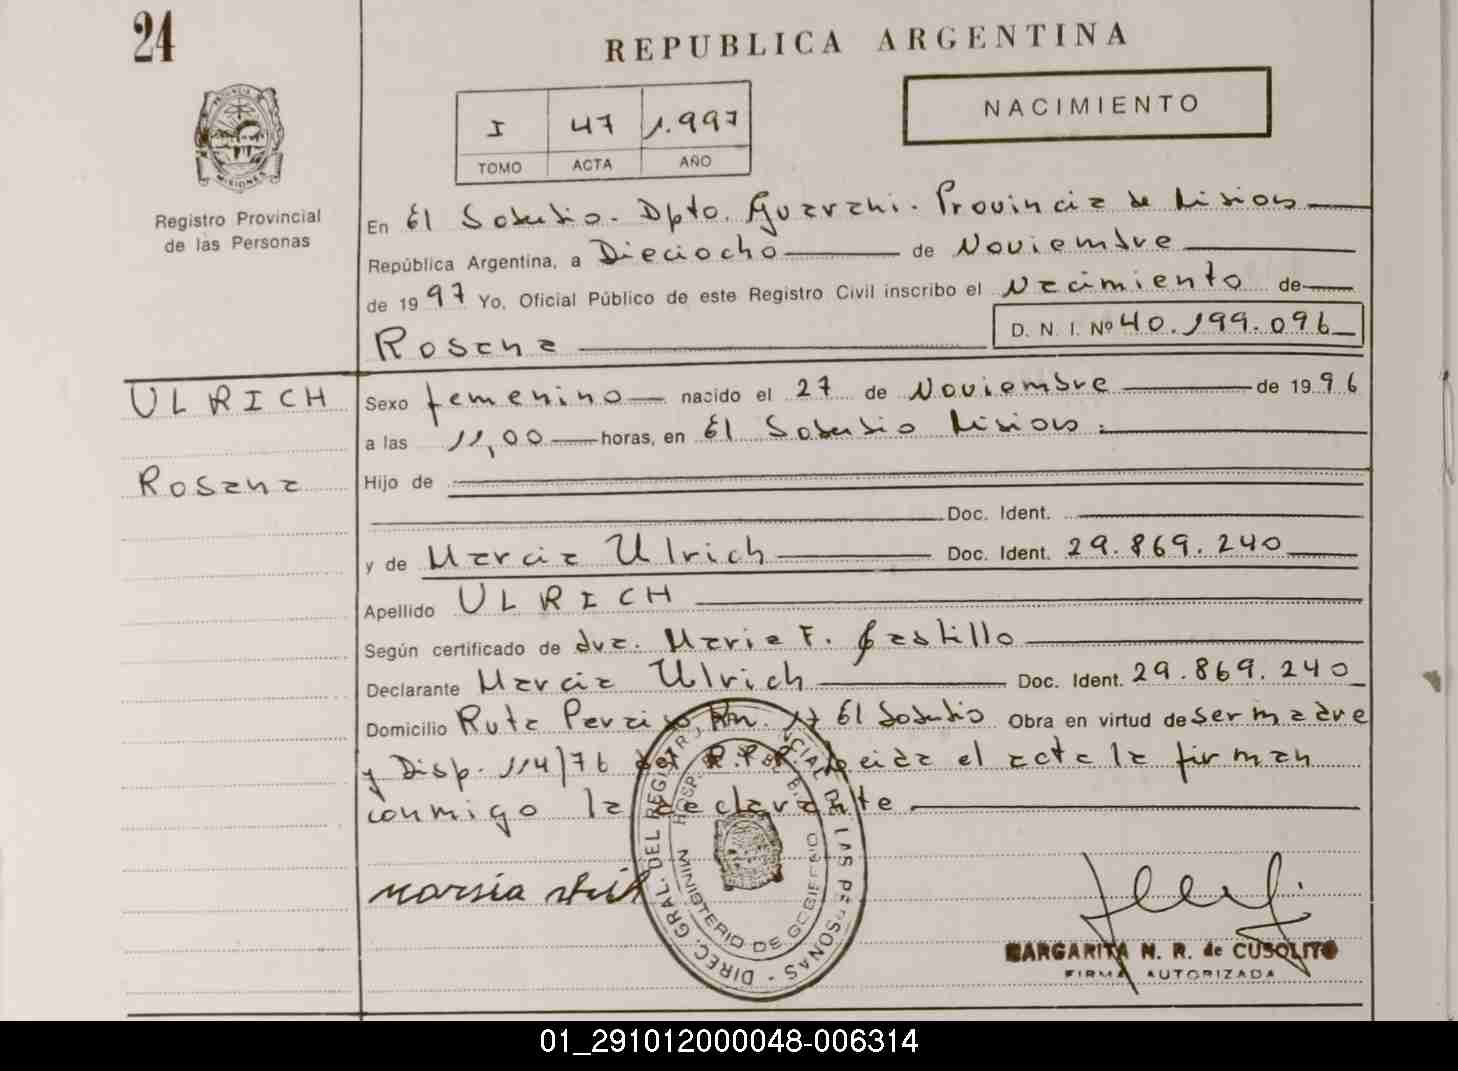 24
REPUBLICA ARGENTINA
NACIMIENTO
I 47 1.997
TOMO ACTA AÑO
PROVINCIA DE MISIONES
Registro Provincial
de las Personas
En El Soberbio. Dpto. Guarani. Provincia de Misiones
República Argentina, a Dieciocho de Noviembre
de 1997 Yo, Oficial Público de este Registro Civil inscribo el Nacimiento de
Rosana D. N. I. Nº 40.199.096
ULRICH
Rosana
Sexo femenino nacido el 27 de Noviembre de 1996
a las 11,00 horas, en El Soberbio Misiones
Hijo de
Doc. Ident.
y de Marcia Ulrich Doc. Ident. 29.869.240
Apellido ULRICH
Según certificado de dra. Maria F. Castillo
Declarante Marcia Ulrich Doc. Ident. 29.869.240
Domicilio Ruta Km. 17 El Soberbio Obra en virtud de ser madre
y Disp. 114/76 del R.P.P. Leida el acta la firman
conmigo la declarante
DIREC. GRAL. DEL REGISTRO PROVINCIAL DE LAS PERSONAS
MINISTERIO DE GOBIERNO
marsia
MARGARITA N. R. de CUSOLITO
FIRMA AUTORIZADA
01_291012000048-006314